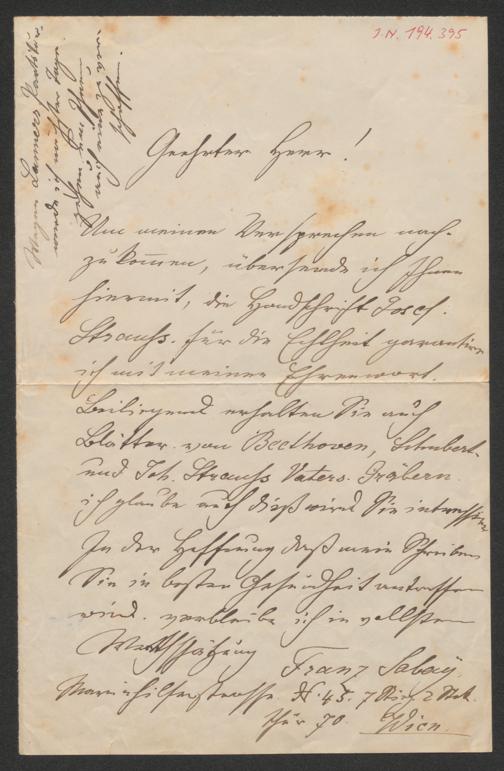 J.N. 194.395
Wegen Lanners Partitur
werde ich nächster Tage
sehen um Ihnen
auch eine zu
schaffen.
Geehrter Herr!
Um meinen Versprechen nach-
zukommen, übersende ich Ihnen
hiermit, die Handschrift Josef.
Strauss. für die Echtheit garantire
ich mit meinem Ehrenwort.
Beiliegend erhalten Sie auch
Blätter von Beethoven, Schubert
und Joh. Strauss Vaters. Gräbern
ich glaube auch dieß wird Sie intressiren
In der Hoffnung daß mein Schreiben
Sie in bester Gesundheit antreffen
wird. verbleibe ich in vollster
Wertschätzung
Franz Sabay.
Mariahilferstrasse. N. 45. 7 Stieg. 2 Stck.
Thür 70. Wien.